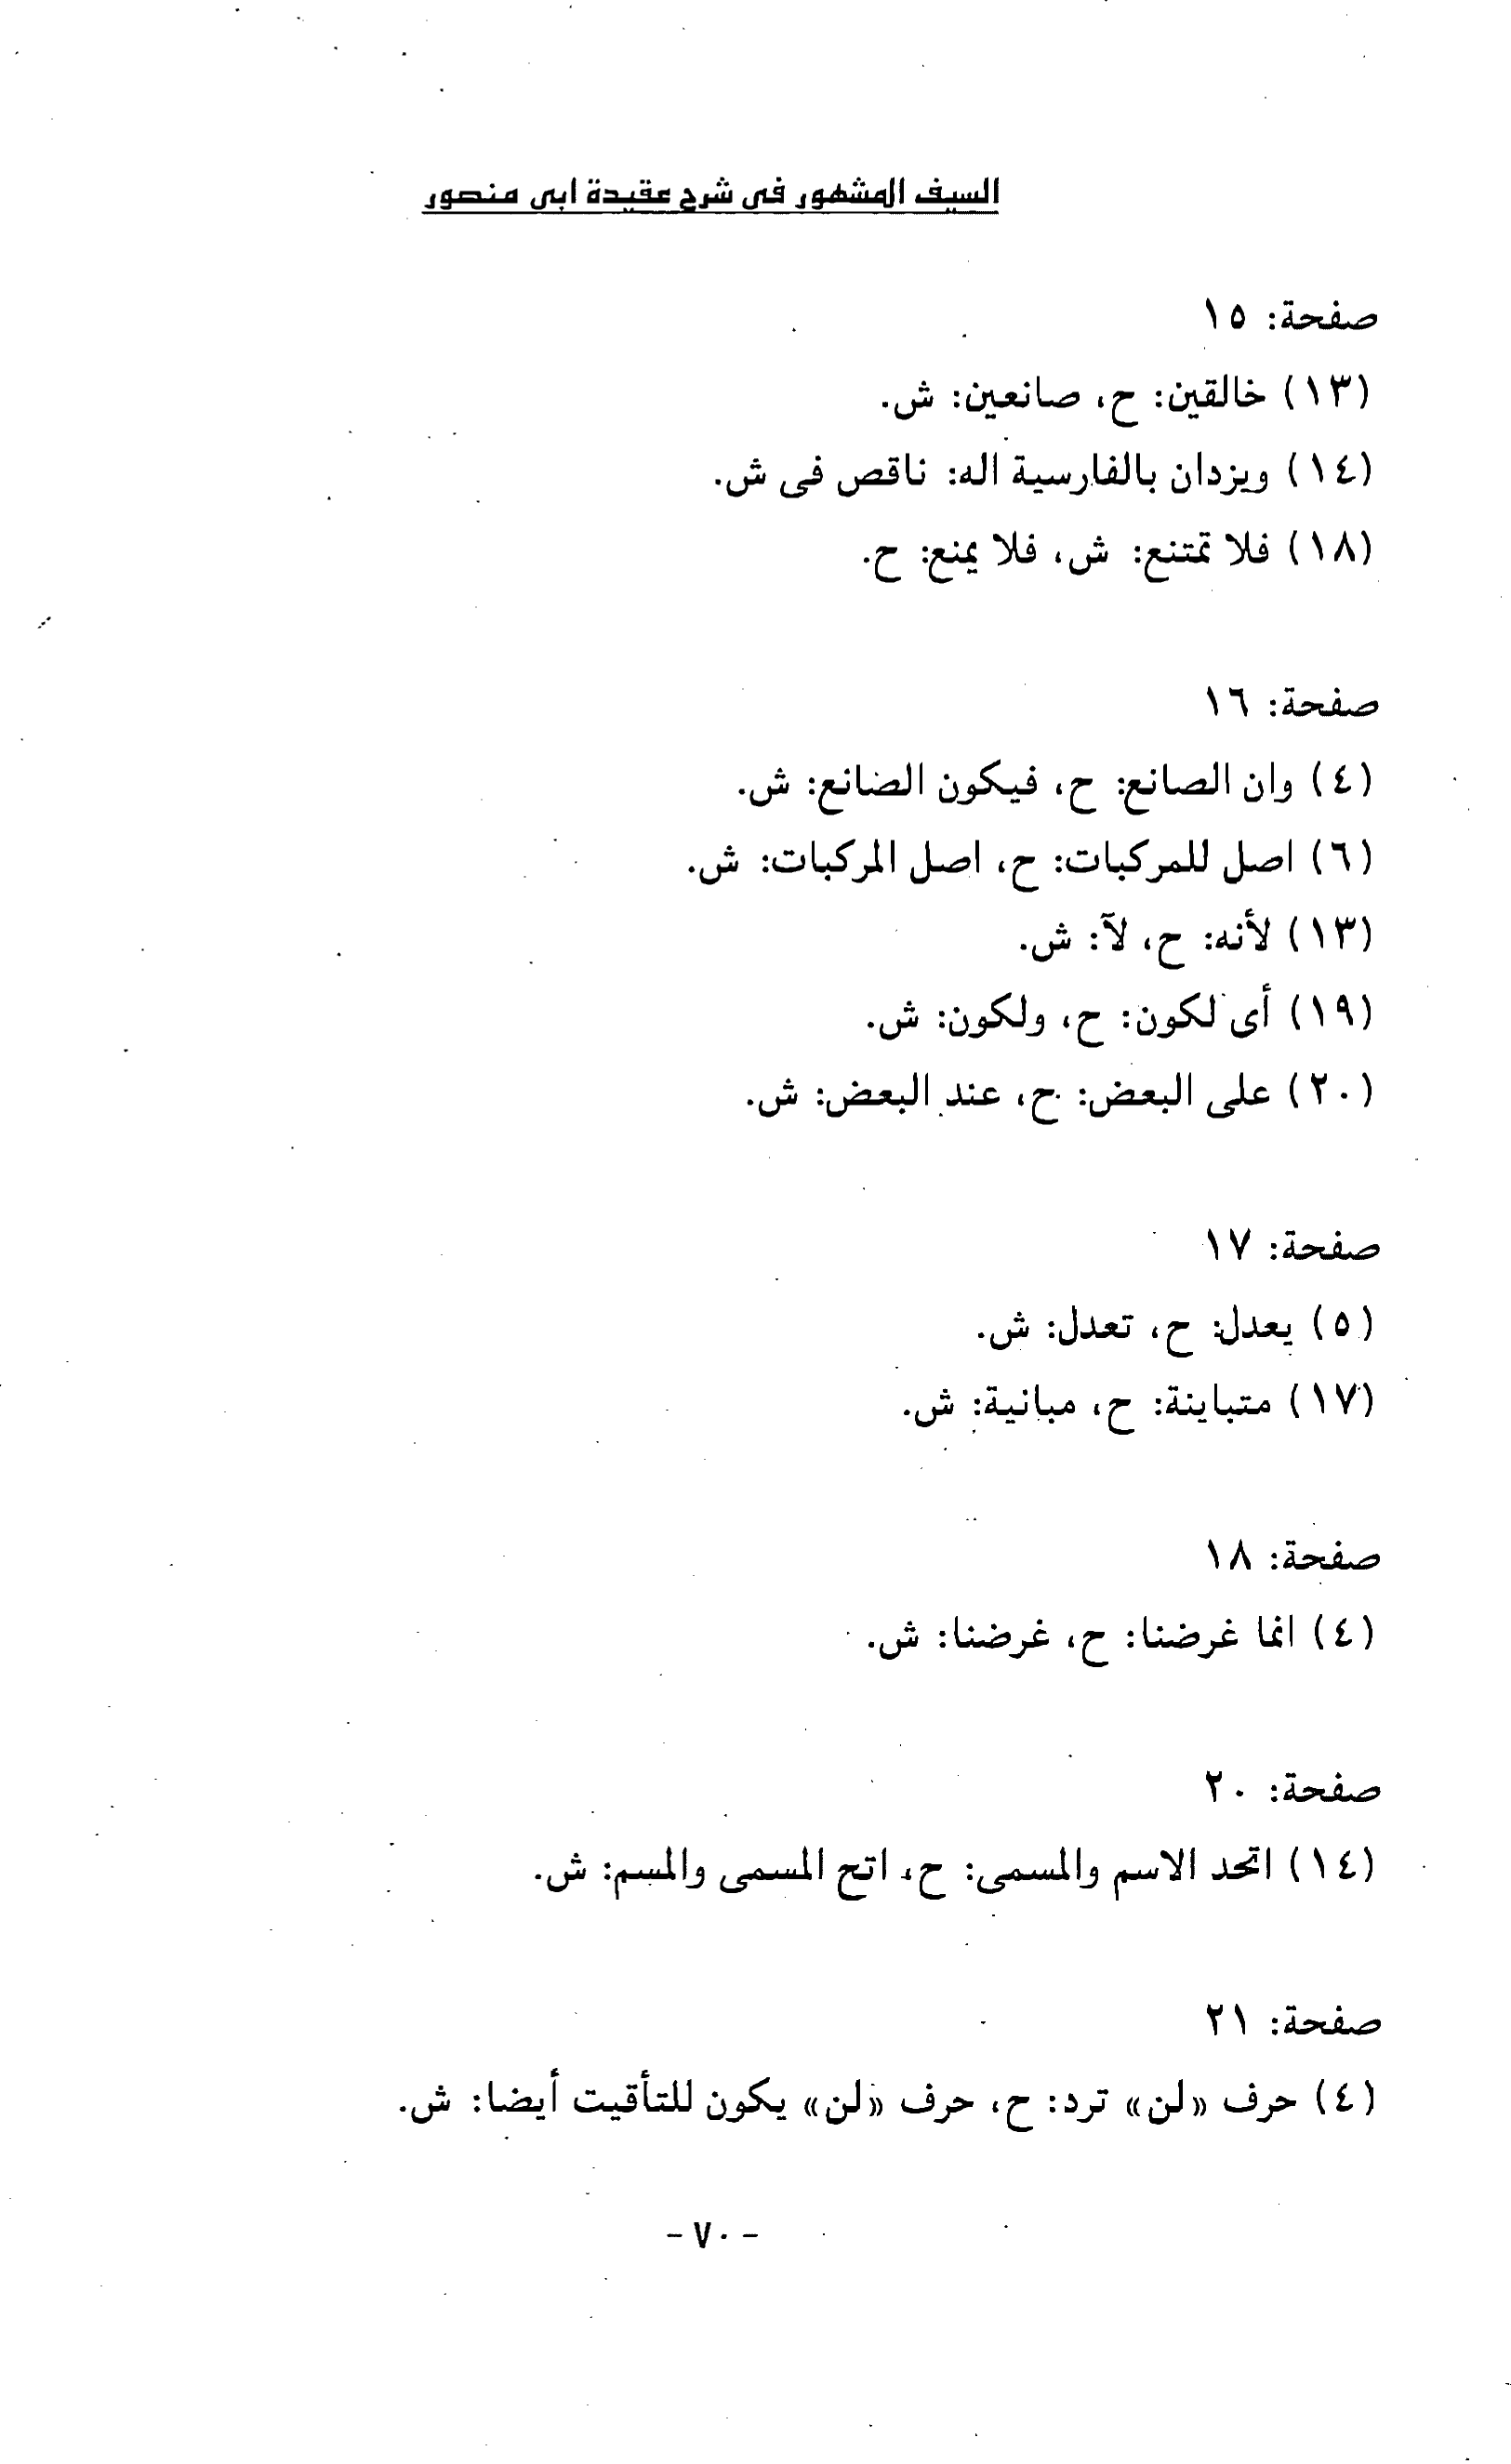 السيف المشهور فى شرح عقيدة ابى منصور
صفحة: ١٥
(١٣) خالقين: ح، صانعين: ش.
(١٤) ويزدان بالفارسية اله: ناقص فى ش.
(١٨) فلا تمتنع: ش، فلا يمنع: ح.
صفحة: ١٦
(٤) وان الصانع: ح، فيكون الصانع: ش.
(٦) اصل للمركبات: ح، اصل المركبات: ش.
(١٣) لأنه: ح، لآ: ش.
(١٩) أى لكون: ح، ولكون: ش.
(٢٠) على البعض: ح، عند البعض: ش.
صفحة: ١٧
(٥) يعدل: ح، تعدل: ش.
(١٧) متباينة: ح، مبانية: ش.
صفحة: ١٨
(٤) انما غرضنا: ح، غرضنا: ش.
صفحة: ٢٠
(١٤) اتحد الاسم والمسمى: ح، اتح المسمى والمسم: ش.
صفحة: ٢١
(٤) حرف «لن» ترد: ح، حرف «لن» يكون للتأقيت أيضا: ش.
- ٧٠ -